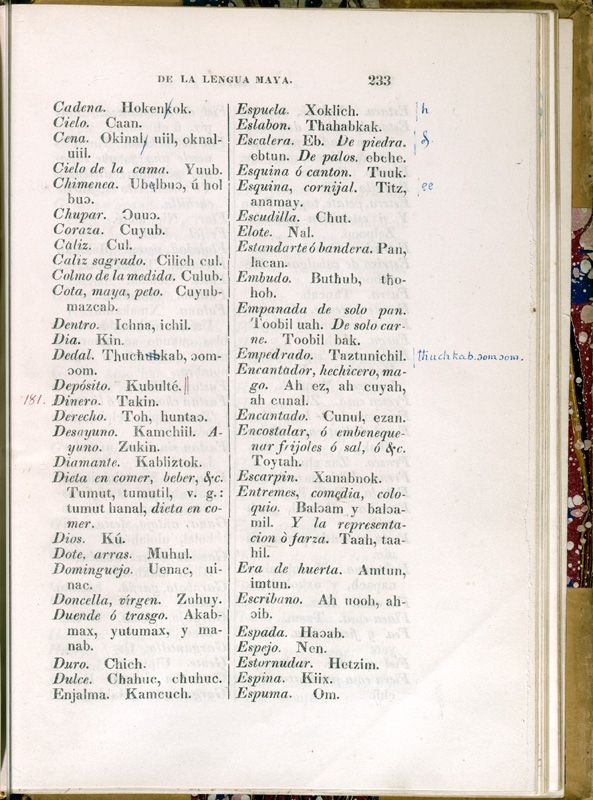 DE LA LENGUA MAYA. 233
Cadena. Hokenkok.
Cielo. Caan.
Cena. Okinal, uiil, oknal-
uiil.
Cielo de la cama. Yuub.
Chimenea. Ubelbuɔ, ú hol
buɔ.
Chupar. Ɔuuɔ.
Coraza. Cuyub.
Càliz. Cul.
Caliz sagrado. Cilich cul.
Colmo de la medida. Culub.
Cota, maya, peto. Cuyub-
mazcab.
Dentro. Ichna, ichil.
Dia. Kin.
Dedal. kab, ɔom-
ɔom.
Depósito. Kubulté.
181. Dinero. Takin.
Derecho. Toh, huntaɔ.
Desayuno. Kamchiil. A-
yuno. Zukin.
Diamante. Kabliztok.
Dieta en comer, beber, &c.
Tumut, tumutil, v. g.:
tumut hanal, dieta en co-
mer.
Dios. Kú.
Dote, arras. Muhul.
Dominguejo. Uenac, ui-
nac.
Doncella, vírgen. Zuhuy.
Duende ó trasgo. Akab-
max, yutumax, y ma-
nab.
Duro. Chich.
Dulce. Chahuc, chuhuc.
Enjalma. Kamcuch.
Espuela. Xoklich. h
Eslabon. Thahabkak.
Escalera. Eb. De piedra.
ebtun. De palos. ebche.
Esquina ó canton. Tuuk.
Esquina, cornijal. Titz, ee
anamay.
Escudilla. Chut.
Elote. Nal.
Estandarte ó bandera. Pan,
lacan.
Embudo. Buthub, tho-
hob.
Empanada de solo pan.
Toobil uah. De solo car-
ne. Toobil bak.
Empedrado. Taztunichil. thuchkab. ɔomɔom.
Encantador, hechicero, ma-
go. Ah ez, ah cuyah,
ah cunal.
Encantado. Cunul, ezan.
Encostalar, ó embeneque-
nar frijoles ó sal, ó &c.
Toytah.
Escarpin. Xanabnok.
Entremes, comedia, colo-
quio. Balɔam y balɔa-
mil. Y la representa-
cion ò farza. Taah, taa-
hil.
Era de huerta. Amtun,
imtun.
Escribano. Ah uooh, ah-
ɔib.
Espada. Haɔab.
Espejo. Nen.
Estornudar. Hetzim.
Espina. Kiix.
Espuma. Om.